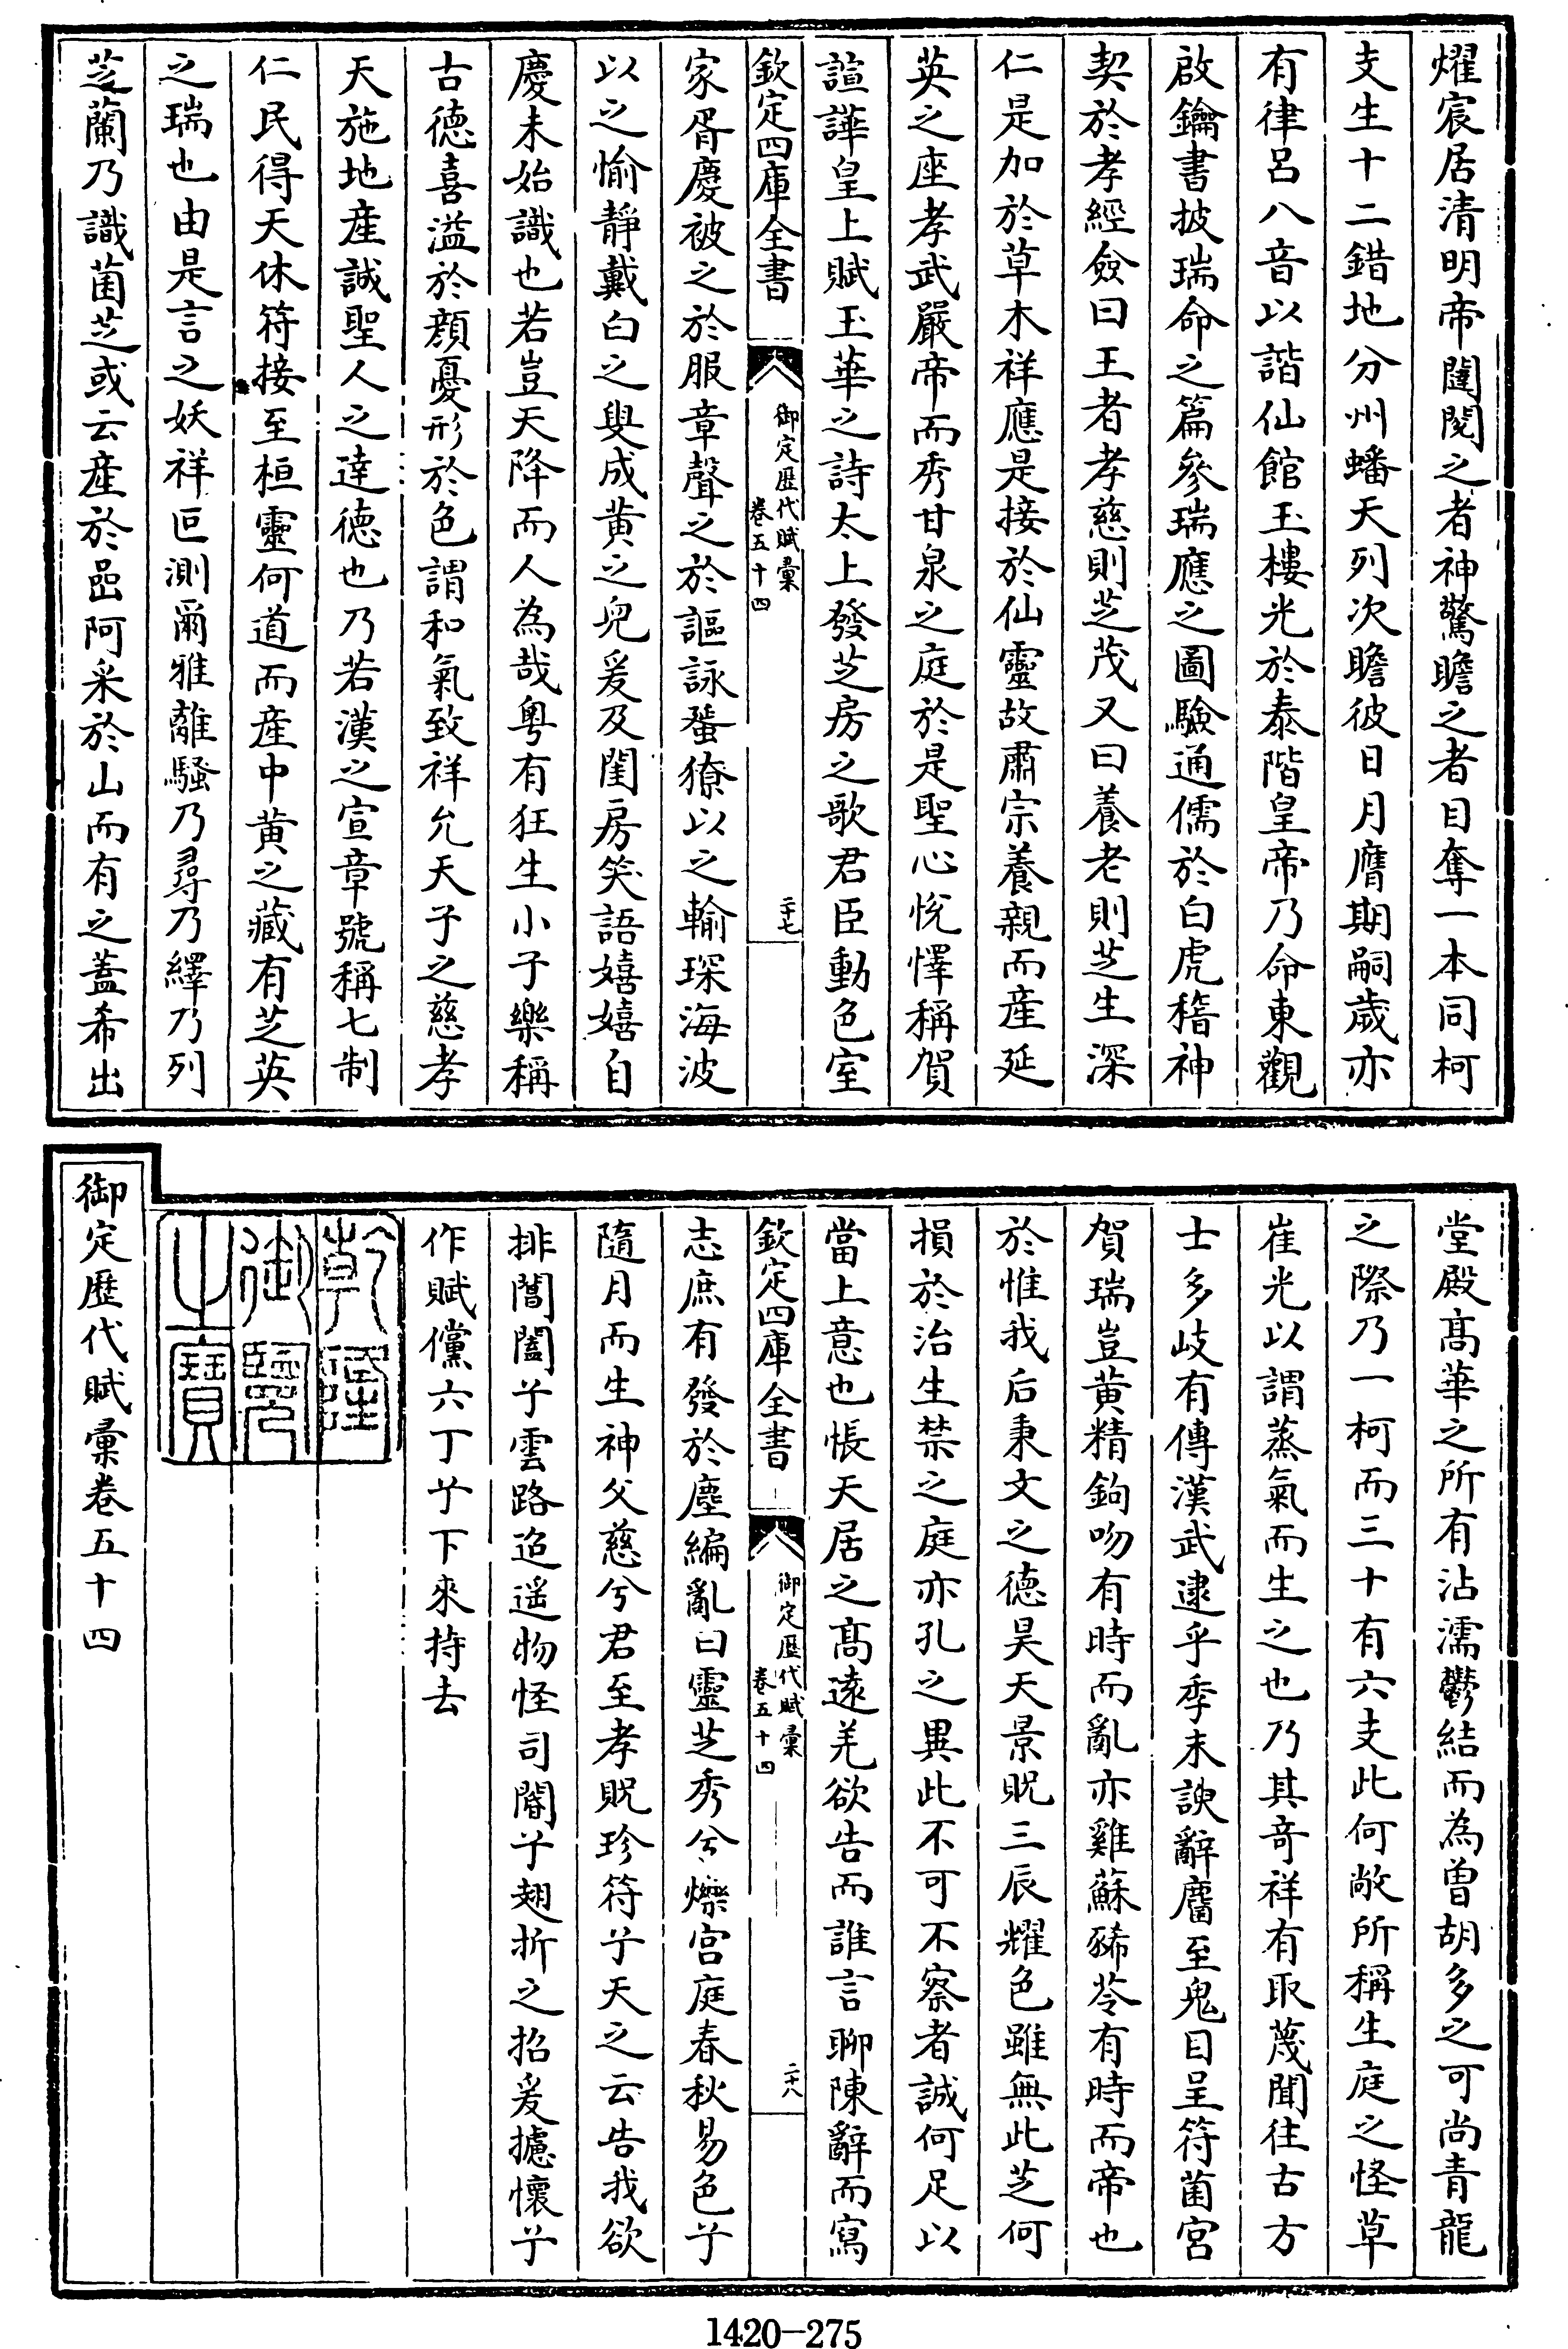 燿宸居清明帝闥閱之者神驚瞻之者目奪一本同柯
支生十二錯地分州蟠天列次瞻彼日月膺期嗣歳亦
有律呂八音以諧仙館玉樓光於泰階皇帝乃命東觀
啟鑰書披瑞命之篇參瑞應之圖驗通儒於白虎稽神
契於孝經僉曰王者孝慈則芝茂又曰養老則芝生深
仁是加於草木祥應是接於仙靈故肅宗養親而産延
英之座孝武嚴帝而秀甘泉之庭於是聖心悅懌稱賀
諠譁皇上賦玉華之詩太上發芝房之歌君臣動色室
欽定四庫全書
御定歷代賦彙
卷五十四
二十七
家胥慶被之於服章聲之於謳詠蜑獠以之輸琛海波
以之愉靜戴白之叟成黄之兒爰及閨房笑語嬉嬉自
慶未始識也若豈天降而人為哉粤有狂生小子樂稱
古德喜溢於顔憂形於色謂和氣致祥允天子之慈孝
天施地産誠聖人之達德也乃若漢之宣章號稱七制
仁民得天休符接至桓靈何道而産中黄之藏有芝英
之瑞也由是言之妖祥叵測爾雅離騷乃尋乃繹乃列
芝蘭乃識菌芝或云産於嵒阿采於山而有之蓋希出
堂殿髙華之所有沾濡鬱結而為曽胡多之可尚青龍
之際乃一柯而三十有六支此何敞所稱生庭之怪草
崔光以謂蒸氣而生之也乃其奇祥有取蔑聞往古方
士多岐有傳漢武逮乎季末諛辭麕至鬼目呈符菌宮
賀瑞豈黄精鉤吻有時而亂亦雞蘇豨苓有時而帝也
於惟我后秉文之德昊天景貺三辰耀色雖無此芝何
損於治生禁之庭亦孔之異此不可不察者誠何足以
當上意也悵天居之髙逺羌欲告而誰言聊陳辭而寫
欽定四庫全書
御定歷代賦彙
卷五十四
二十八
志庶有發於塵編亂曰靈芝秀兮爍宫庭春秋易色兮
隨月而生神父慈兮君至孝貺珍符兮天之云告我欲
排閶闔兮雲路迢遥物怪司閽兮翅折之招爰攄懷兮
作賦儻六丁兮下來持去
乾隆
御覽
之寶
御定歷代賦彙卷五十四
1420-275